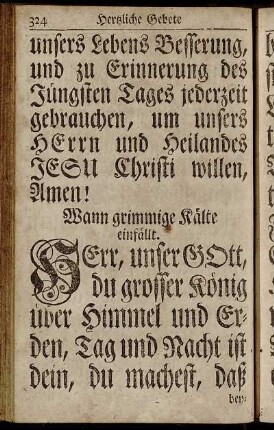 324 Hertzliche Gebete
unsers Lebens Besserung,
und zu Erinnerung des
Jüngsten Tages jederzeit
gebrauchen, um unsers
HErrn und Heilandes
JESU Christi willen,
Amen!
Wann grimmige Kälte
einfällt.
HErr, unser GOtt,
du grosser König
über Himmel und Er-
den, Tag und Nacht ist
dein, du machest, daß
bey-